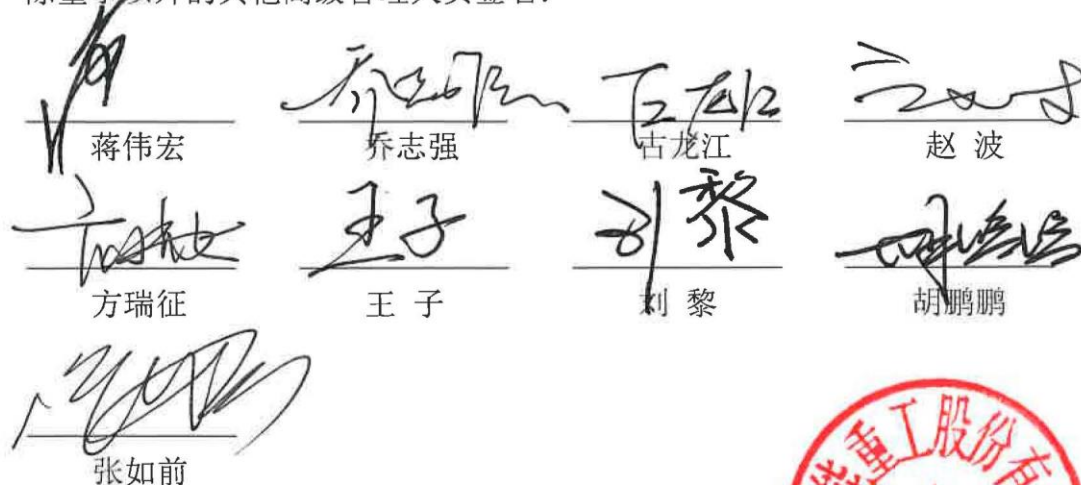 蒋伟宏 乔志强 古龙江 赵 波
王子 刘黎
方瑞征 王 子 刘 黎 胡鹏鹏
张如前
重工股份有